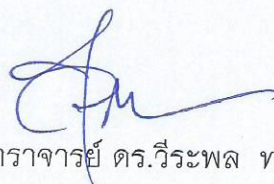 ราจารย์ ดร.วีระพล ท